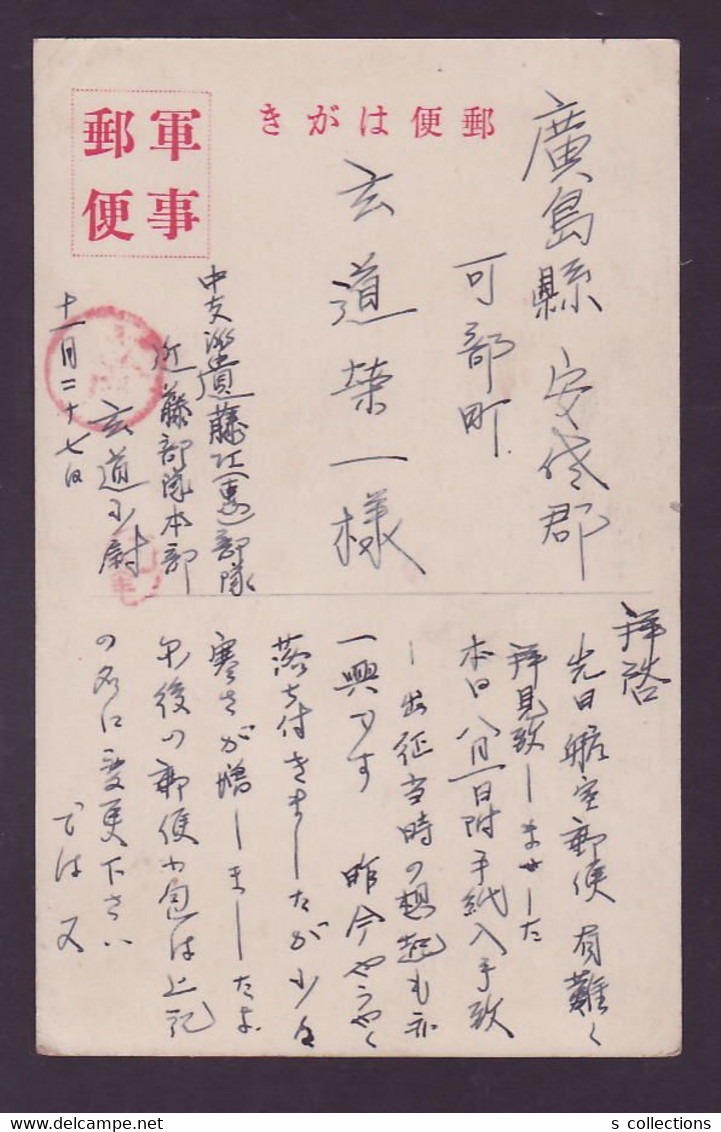 郵便はがき
軍事郵便
廣島縣安佐郡
可部町
玄道榮一様
中支派遣藤江(恵)部隊
近藤部隊本部
玄道少尉
十一月二十七日
拝啓
先日航空郵便有難く
拝見致しました
本日八月一日附手紙入手致
し出征当時の想起も亦
一興です 昨今やうやく
落ち付きましたが少々
寒さが増しましたよ
今後の郵便小包は上記
の名に変更下さい
では又
s collections